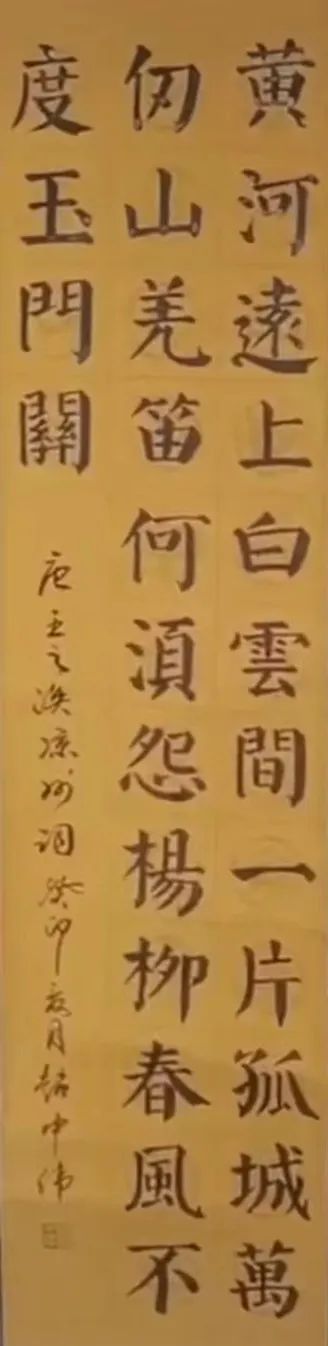 黄河遠上白雲間一片孤城萬
仞山羌笛何須怨楊柳春風不
度玉門關
唐王之渙涼州詞癸卯夏月中伟